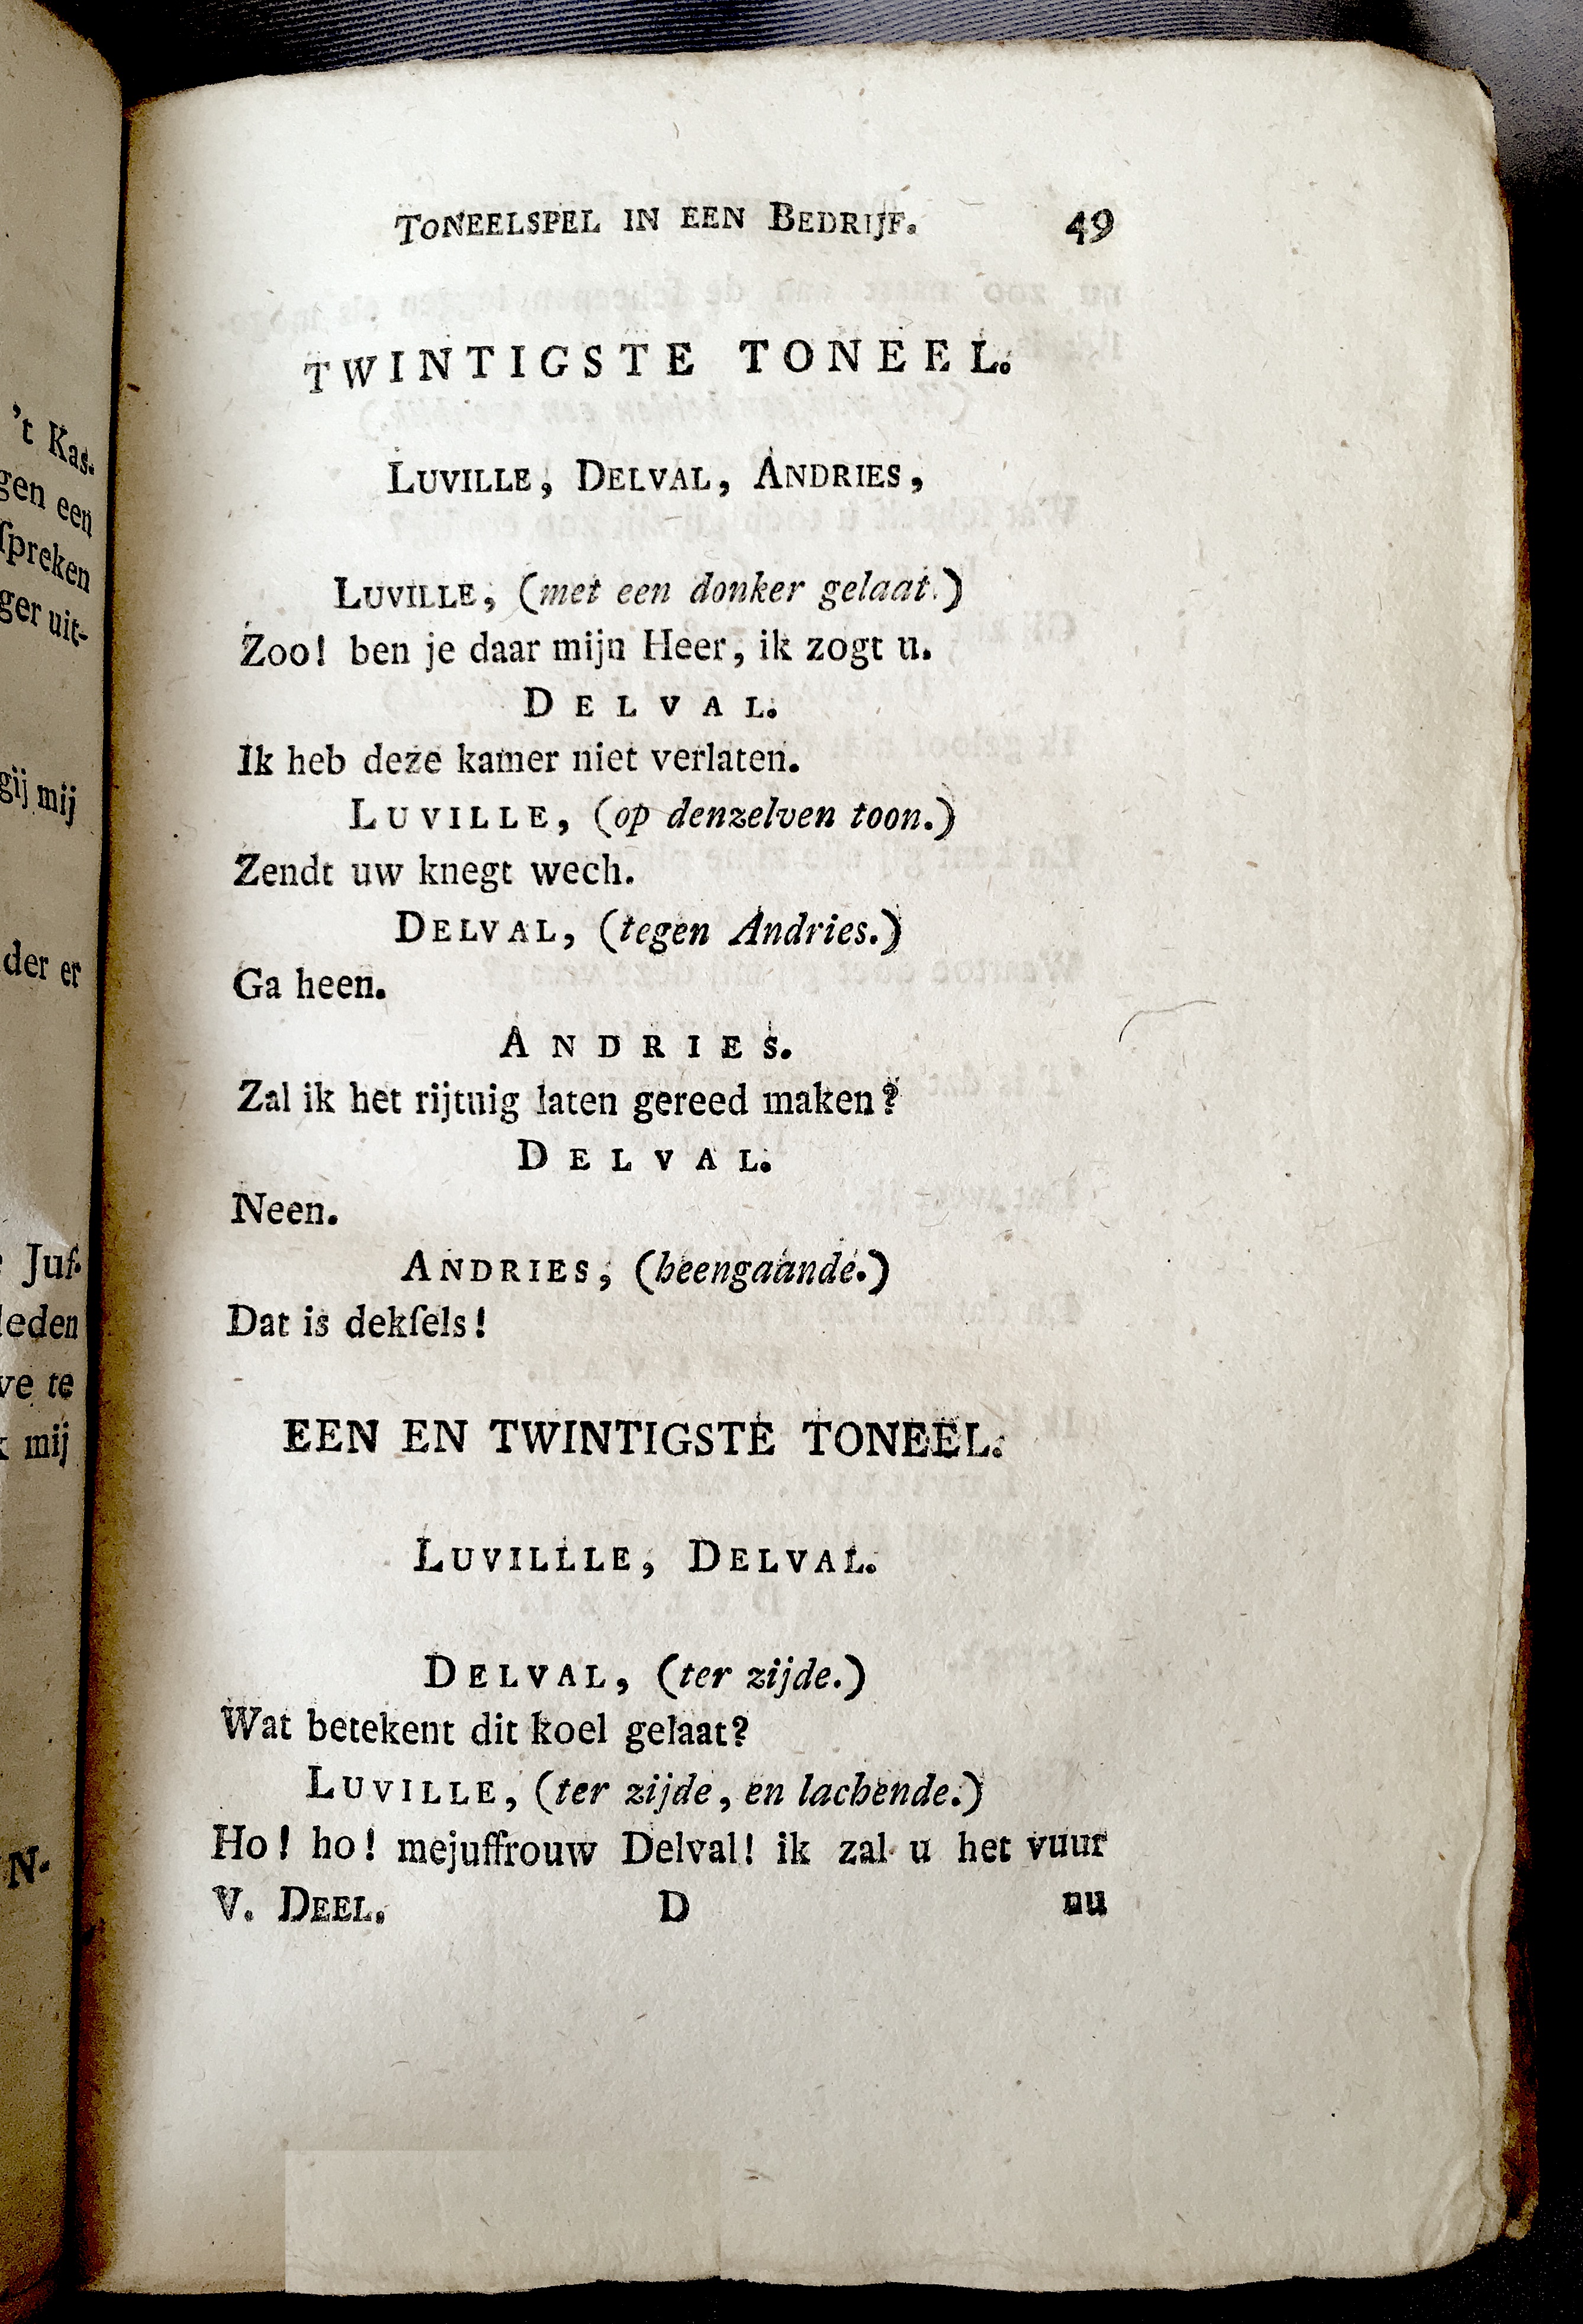 't Kas-
gen een
ſpreken
ger uit-
gij mij
der er
Juf-
leden
ve te
mij
N-
TONEELSPEL IN EEN BEDRIJF. 49
TWINTIGSTE TONEEL.
LUVILLE, DELVAL, ANDRIES,
LUVILLE, (met een donker gelaat.)
Zoo! ben je daar mijn Heer, ik zogt u.
DELVAL.
Ik heb deze kamer niet verlaten.
LUVILLE, (op denzelven toon.)
Zendt uw knegt wech.
DELVAL, (tegen Andries.)
Ga heen.
ANDRIES.
Zal ik het rijtuig laten gereed maken?
DELVAL.
Neen.
ANDRIES, (heengaande.)
Dat is dekſels!
EEN EN TWINTIGSTE TONEEL.
LUVILLLE, DELVAL.
DELVAL, (ter zijde.)
Wat betekent dit koel gelaat?
LUVILLE, (ter zijde, en lachende.)
Ho! ho! mejuffrouw Delval! ik zal u het vuur
V. DEEL. D nu